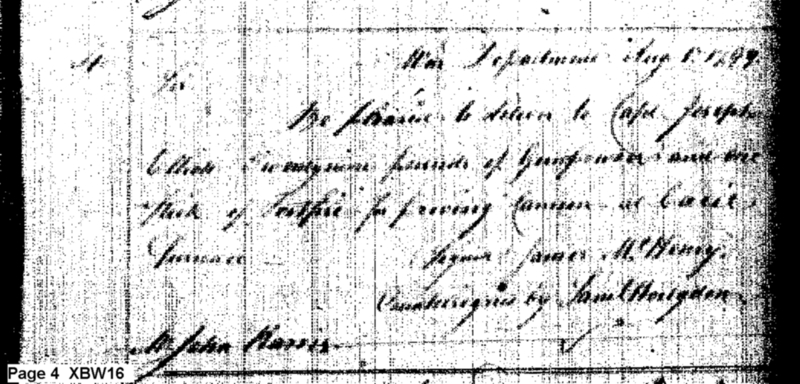 4
War Department Aug 1st 1799
Sir
Be pleased to deliver to Capt Joseph
Elliott pounds of Gunpowder and one
Stick of Portfire for proving Cannon at Cecil
Furnace
Signed James McHenry
Countersigned by Saml Hodgdon
Mr John Harris
Page 4 XBW16